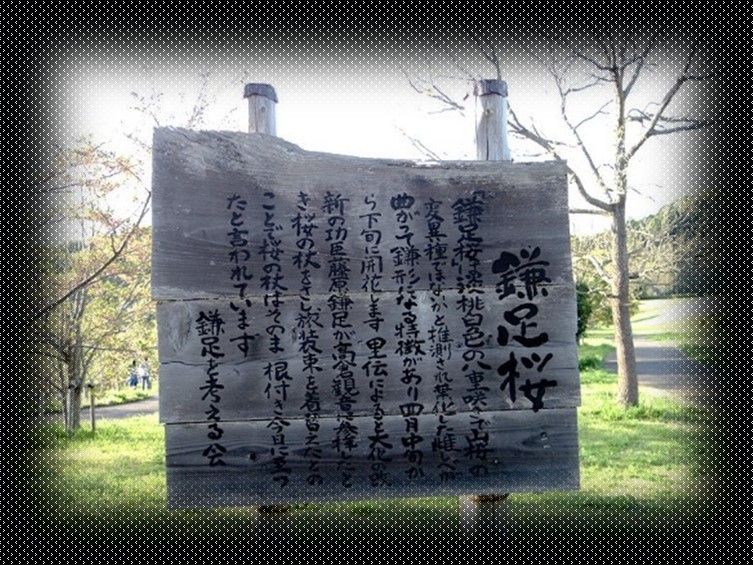 鎌足桜
鎌足桜は淡桃白色の八重咲きで山桜の
変異種ではないかと推測され葉化した雌しべが
曲がって鎌形になる特徴があり四月中旬か
ら下旬に開花します 里伝によると大化の改
新の功臣藤原鎌足が高倉観音に参拝したと
き桜の杖をさし旅装束を着替えたとの
ことで桜の杖はそのまま根付き今日に至っ
たと言われています
鎌足を考える会